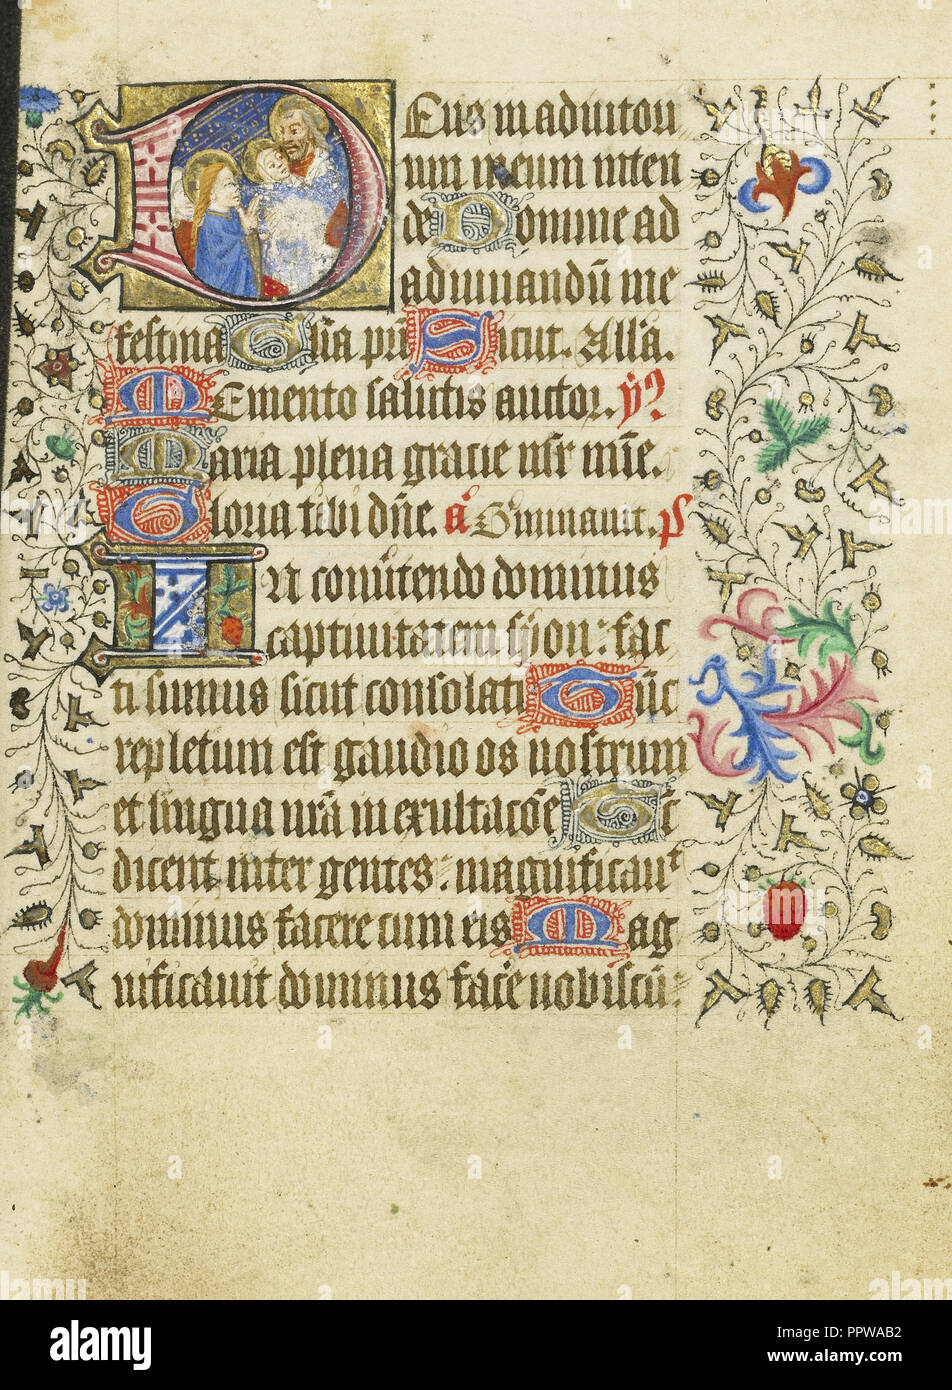 Deus in adiutori
um meum inten
de Domine ad
adiuuandū me
festina Glīa pri Sicut. Alla.
Memento salutis auctor. ym̄
Maria plena gracie mr̄ mīe.
Gloria tibi dn̄e. a Germinauit. ps
In conu̅tendo dominus
captiuitatem syon: fac
ti sumus sicut consolati Tūc
repletum est gaudio os nostrum
et lingua nr̄a in exultacōe Tc̄
dicent inter gentes: magnificauᵗ
dominus facere cum eis Mag
nificauit dominus fac̄e nobiscū:
alamy
Image ID: PPWAB2
www.alamy.com